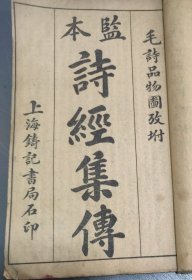 毛詩品物圖攷坿
監本
詩經集傳
上海鑄記書局石印